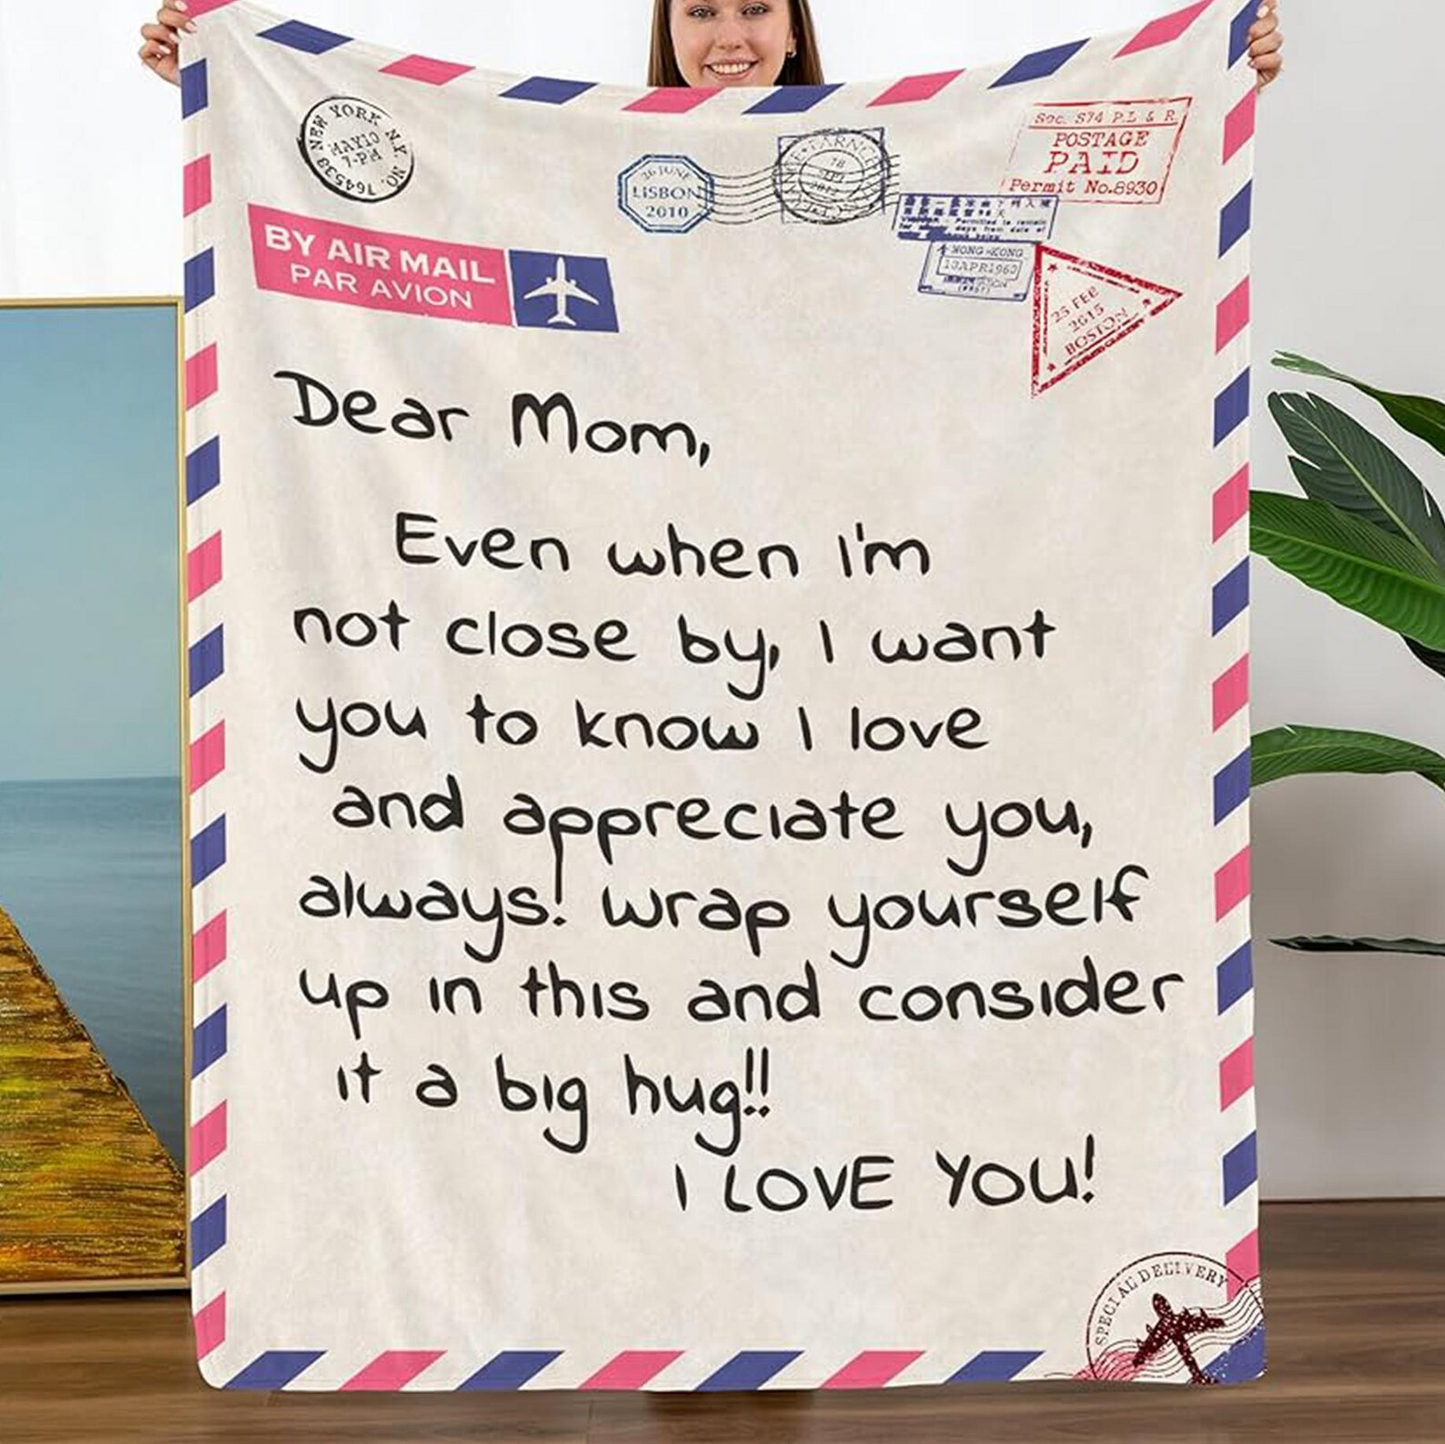 NEW YORK N.Y. NO. 764533
MAY10
7-PM
26 JUNE
LISBON
2010
Soc. S74 P.L & R.
POSTAGE
PAID
Permit No.8930
Permitted to remain
days from date of
HONG-KONG
13APR1963
25 FEB
2015
BOSTON
BY AIR MAIL
PAR AVION
Dear Mom,
Even when I'm
not close by, I want
you to know I love
and appreciate you,
always! wrap yourself
up in this and consider
it a big hug!!
I LOVE YOU!
SPECIAL DELIVERY